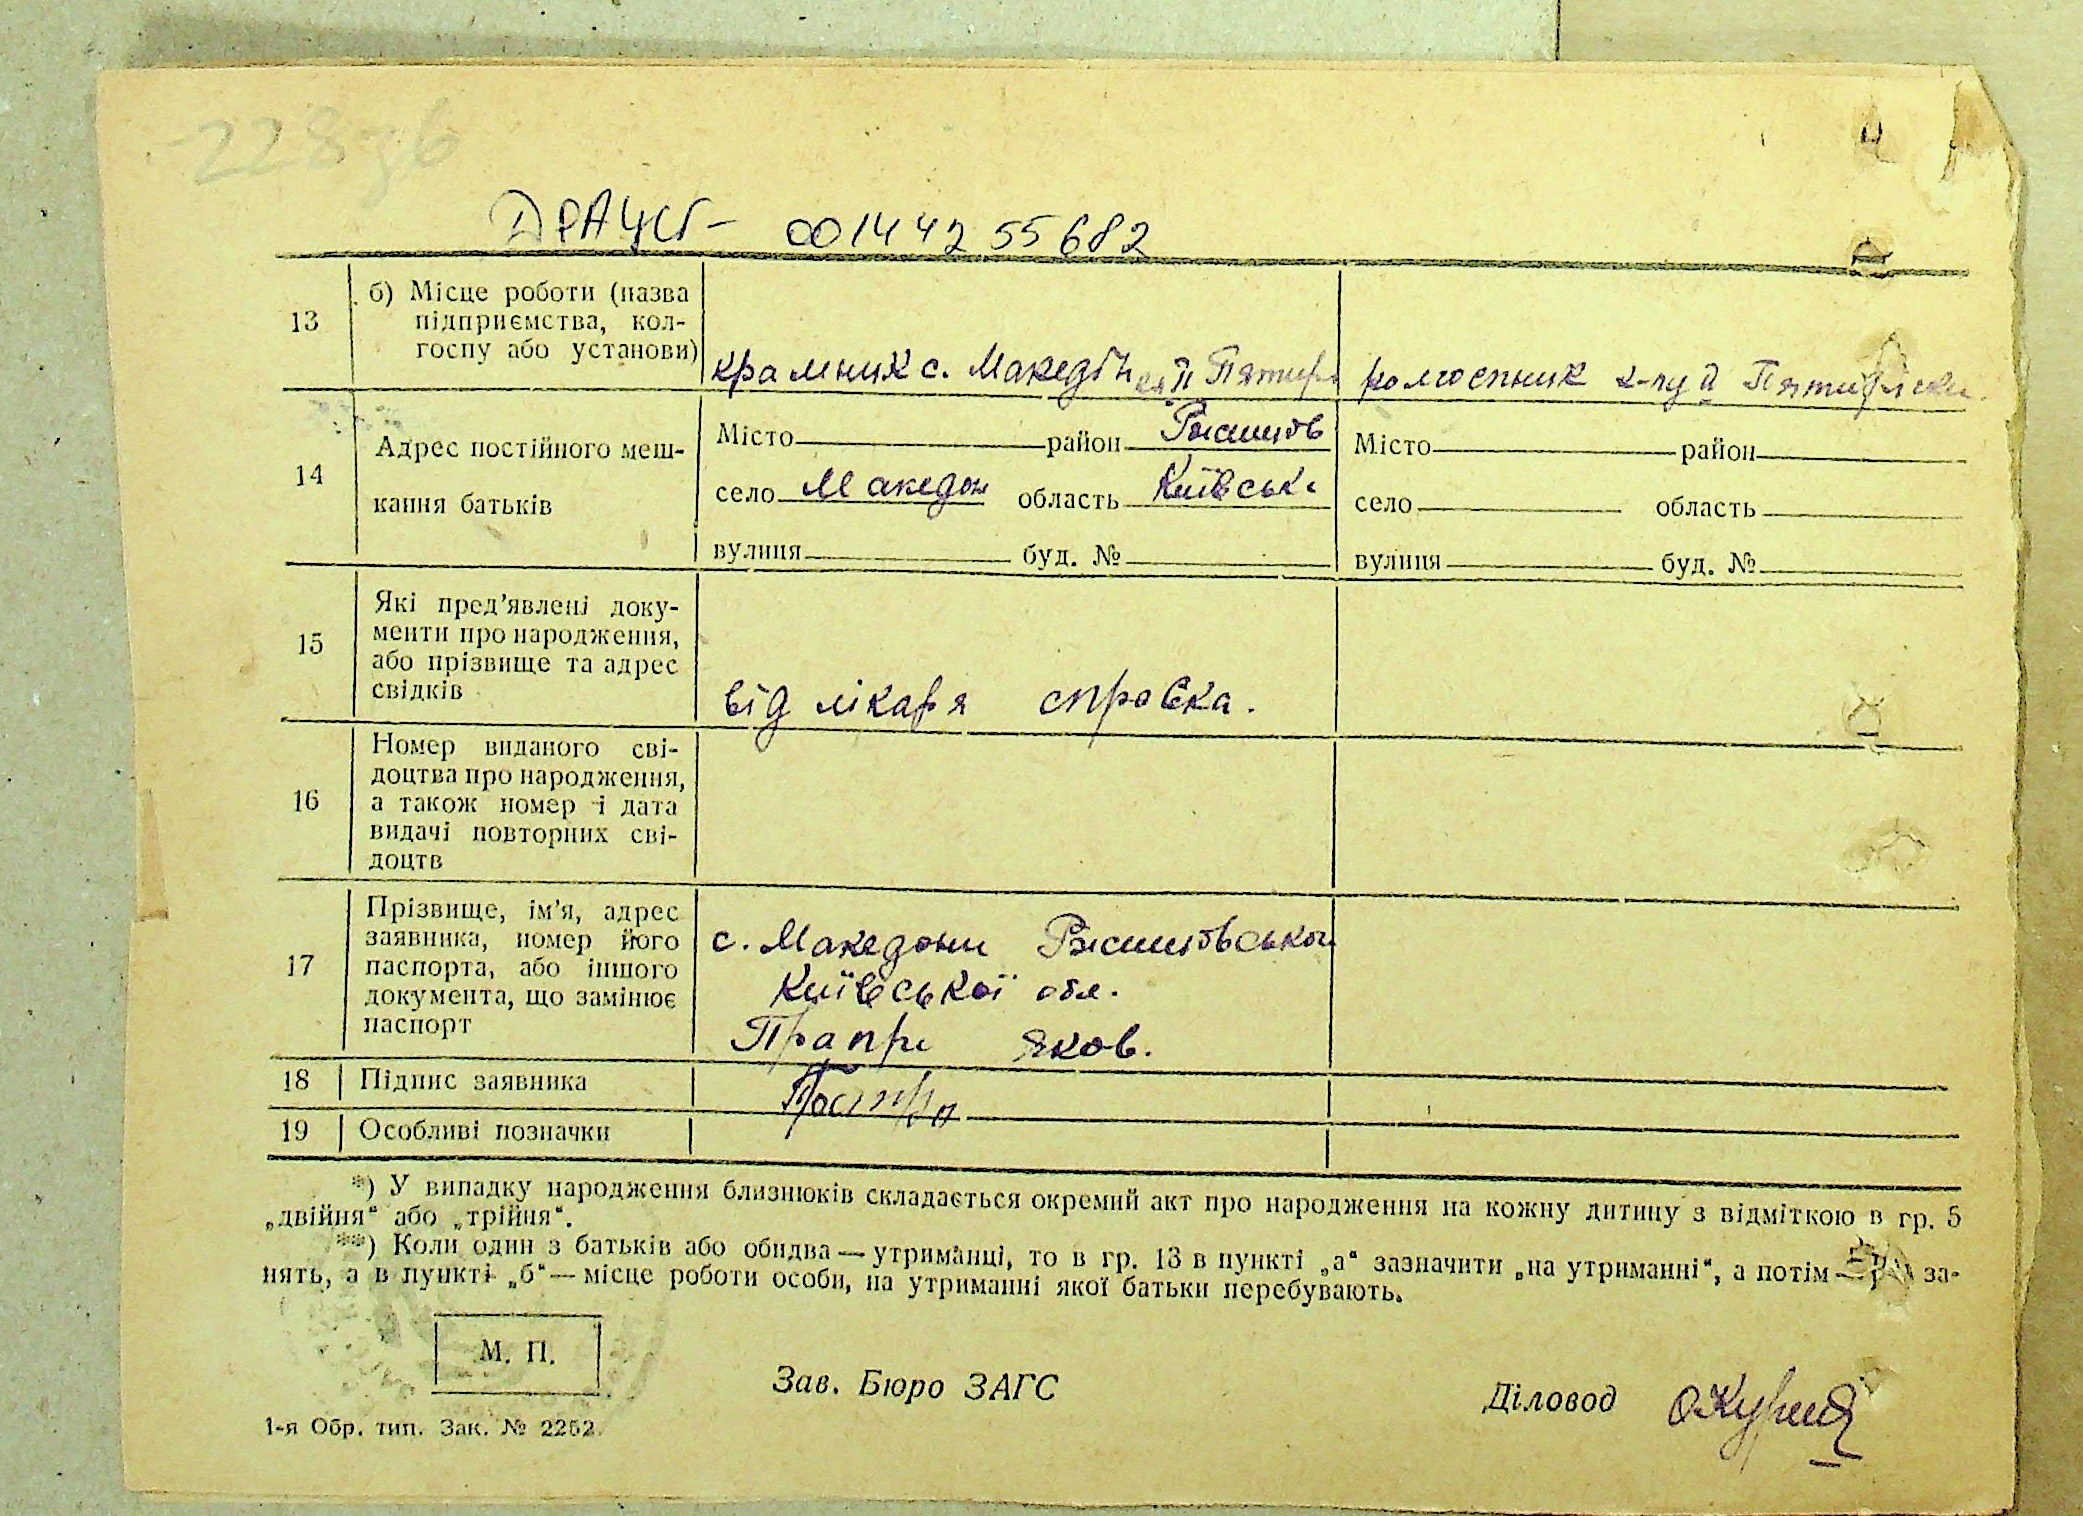 228 зв
ДРАЦСГ- 00144255682
13
б) Місце роботи (назва
підприємства, кол-
госпу або установи)
крамник с. Македін II Пятир
колгоспник к-пу II Пятирічки
14
Адрес постійного меш-
кання батьків
Місто район Ржищів
село Македон область Київськ
вулиця буд. №
Місто район
село область
вулиця буд. №
15
Які пред’явлені доку-
менти про народження,
або прізвище та адрес
свідків
від лікаря справка.
16
Номер виданого сві-
доцтва про народження,
а також номер і дата
видачі повторних сві-
доцтв
17
Прізвище, ім’я, адрес
заявника, номер його
паспорта, або іншого
документа, що замінює
паспорт
с. Македони Ржищівськои
Київської обл.
Яков.
18 Підпис заявника
19 Особливі позначки
*) У випадку народження близнюків складається окремий акт про народження на кожну дитину з відміткою в гр. 5
„двійня“ або „трійня“.
**) Коли один з батьків або обидва — утриманці, то в гр. 13 в пункті „а“ зазначити „на утриманні“, а потім — за-
нять, а в пункті „б“ — місце роботи особи, на утриманні якої батьки перебувають.
М. П.
Зав. Бюро ЗАГС
Діловод
1-я Обр. тип. Зак. № 2252.